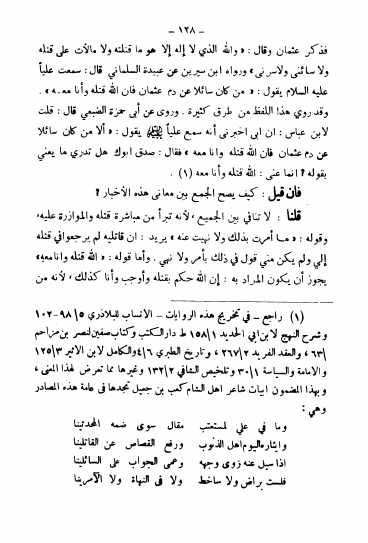 – ١٢٨ –
فذكر عثمان وقال : « والله الذي لا إله إلا هو ما قتلته ولا مالأت على قتله
ولا سائني ولاسرني » ورواه ابن سيرين عن عبيدة السلماني قال : سمعت علياً
عليه السلام يقول : « من كان سائلا عن دم عثمان فان الله قتله وأنا معه » .
وقد روي هذا اللفظ من طرق كثيرة . وروى عن أبي حمزة الضبعي قال : قلت
لابن عباس : ان ابى اخبرنى أنه سمع علياً عليه السلام يقول : « ألا من كان سائلا
عن دم عثمان فان الله قتله وانا معه » فقال : صدق ابوك هل تدري ما يعني
بقوله ؟ انما عنى : الله قتله وأنا معه (١)
فان قيل : كيف يصح الجمع بين معانى هذه الأخبار ؟
قلنا : لا تنافي بين الجميع ، لأنه تبرأ من مباشرة قتله والموازرة عليه ،
وقوله : « ما أمرت بذلك ولا نهيت عنه » يريد : ان قاتليه لم يرجعوا في قتله
إلي ولم يكن مني قول في ذلك بأمر ولا نهي . وأما قوله : « الله قتله وانامعه»
يجوز أن يكون المراد به : إن الله حكم بقتله وأوجب وأنا كذلك ، لأنه من
(١) راجع – في تخريج هذه الروايات – الانساب للبلاذري ٥/٩٨–١٠٢
وشرح النهج لابن ابي الحديد ١/١٥٨ ط دار الكتب وكتاب صفين لنصر بن مزاحم
/٦٣ ، والعقد الفريد ٢/٢٦٧ ، وتاريخ الطبري ٤/٦ والكامل لابن الاثير ٣/١٢٥
والامامة والسياسة ١/٣٠ وتلخيص الشافي ٢/١٣٢ وغيرها مما تعرض لهذا المعنى ،
وبهذا المضمون ابيات شاعر اهل الشام كعب بن جعيل تجدها في عامة هذه المصادر
وهي :
وما في علي لمستعتب مقال سوى ضمه المحدثينا
وايثاره اليوم اهل الذنوب ورفع القصاص عن القاتلينا
اذا سيل عنه زوى وجهه وعمى الجواب على السائلينا
فلست براض ولا ساخط ولا فى النهاة ولا الآمرينا